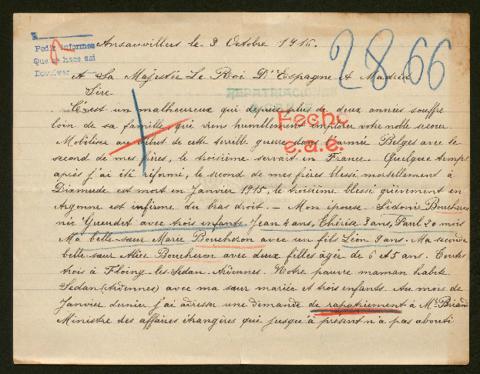 R
Pedir informes
Que se hace asi
Ansauvillers le 3 Octobre 1916.
2866
A Sa Majestie Le Roi D'Espagne A Madrid
Sire
REPATRIACION
C'est un malheureux qui depuis plus de deux années souffre
loin de sa famille qui viens humblement implorer votre noble cœur
Fecho
e.a.e.
Mobilisé au début de cette terrible guerre dans l'armée Belges avec le
second de mes frères, le troisième servait en France. Quelque temps
après j'ai été reformé, le second de mes frères blessé mortellement à
Dixmude est mort en Janvier 1915, le troisième blessé grièvement en
Argonne est infirme du bras droit. - Mon épouse Sidonie Boucheron
née Gueudet avec trois enfants Jean 4 ans, Thérèse 3 ans, Paul 20 mois
Ma belle-sœur Marie Boucheron avec un fils Léon 9 ans. Ma seconde
belle-sœur Alice Boucheron avec deux filles agée de 6 et 5 ans. Toutes
trois à Floing-les-Sedan Ardennes. Notre pauvre maman habite
Sedan (Ardennes) avec ma sœur mariée et trois enfants. Au mois de
Janvier dernier j'ai adressé une demande de rapatriement à Mr Briand
Ministre des affaires étrangères qui jusqu'à présent n'a pas abouti